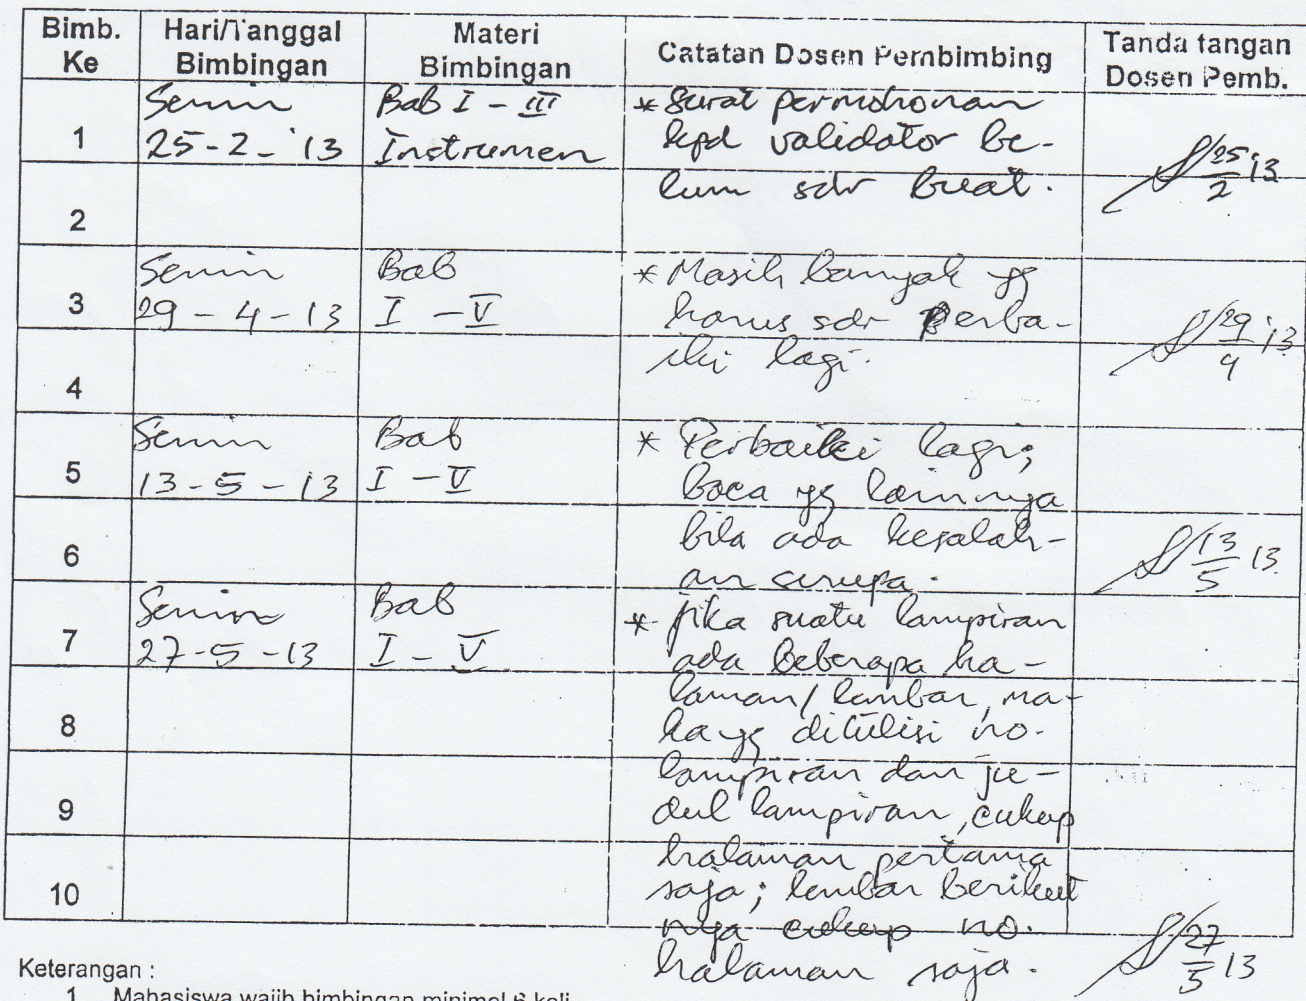 Bimb. Ke
Hari/Tanggal Bimbingan
Materi Bimbingan
Catatan Dosen Pembimbing
Tanda tangan Dosen Pemb.
1
Senin
25-2-'13
Bab I - III
Instrumen
* Surat permohonan
kpd validator be-
lum sdr buat.
25/2 '13
2
3
Senin
29 - 4 - 13
Bab
I - V
* Masih banyak yg
harus sdr perba-
iki lagi.
29/4 '13
4
5
Senin
13 - 5 - 13
Bab
I - V
* Perbaiki lagi;
baca yg lainnya
bila ada kesalah-
an serupa.
13/5 13
6
7
Senin
27-5-13
Bab
I - V
* Jika suatu lampiran
ada beberapa ha-
laman/lembar, ma-
ka yg ditulisi no.
lampiran dan ju-
dul lampiran, cukup
halaman pertama
saja; lembar berikut
nya cukup no.
halaman saja.
27/5 13
8
9
10
Keterangan :
1. Mahasiswa wajib bimbingan minimal 6 kali